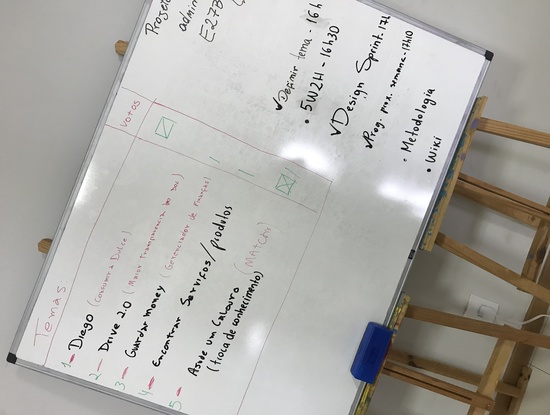 Temas
votos
1 - Diego (Consumer a Dulce)
2 - Drive 2.0 (Maior transparencia
3 - Guardar money (Gerenciador de finanças)
4 - Encontrar serviços/produtos
5 - Ajude um calouro
(troca de conhecimento)
admin
E27B
✓ Definir tema - 16h
• 5W2H - 16h30
✓ Design Sprint - 17h
✓ Prog. prox. semana - 17h10
• Metodologia
• Wiki